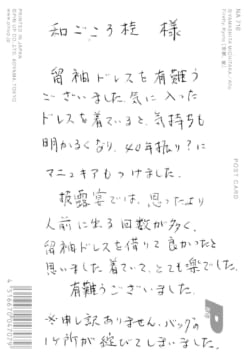 知ごころ枝 様
留袖ドレスを有難う
ございました。気に入った
ドレスを着ていると、気持ちも
明かるくなり、40年振り?に
マニュキアもつけました。
披露宴では、思ったより
人前に出る回数が多く、
留袖ドレスを借りて良かったと
思いました。着ていて、とても楽でした。
有難うございました。
※申し訳ありません、バッグの
1ヶ所が綻びてしまいました。
POST CARD
NA 718
PRINTED IN JAPAN